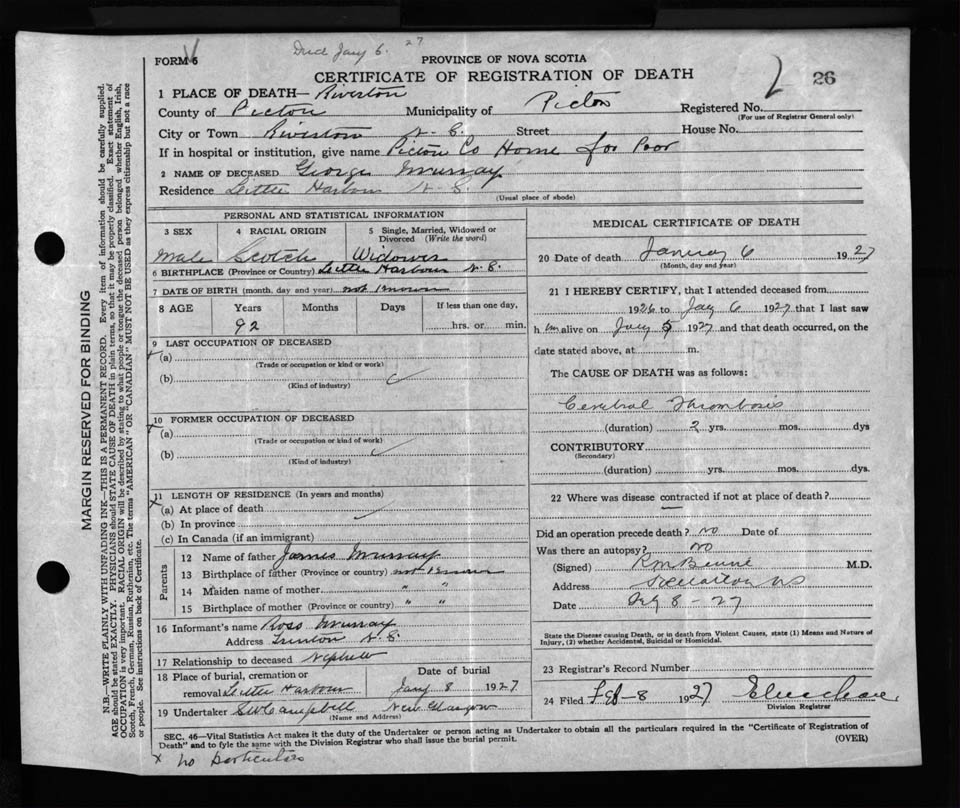 Died Jany 6. 27
FORM 6
PROVINCE OF NOVA SCOTIA
CERTIFICATE OF REGISTRATION OF DEATH
26
1 PLACE OF DEATH— Riverton
County of Pictou Municipality of Pictou Registered No.
(For use of Registrar General only)
City or Town Riverton N. S. Street House No.
If in hospital or institution, give name Pictou Co Home for Poor
2 NAME OF DECEASED George Murray
Residence Little Harbour N. S.
(Usual place of abode)
PERSONAL AND STATISTICAL INFORMATION
3 SEX 4 RACIAL ORIGIN 5 Single, Married, Widowed or Divorced (Write the word)
Male Scotch Widower
6 BIRTHPLACE (Province or Country) Little Harbour N. S.
7 DATE OF BIRTH (month, day and year) not known
8 AGE Years Months Days If less than one day,
92 hrs. or min.
9 LAST OCCUPATION OF DECEASED
x (a)
(Trade or occupation or kind or work)
(b)
(Kind of industry)
10 FORMER OCCUPATION OF DECEASED
x (a)
(Trade or occupation or kind of work)
(b)
(Kind of industry)
11 LENGTH OF RESIDENCE (In years and months)
x (a) At place of death
(b) In province
(c) In Canada (if an immigrant)
Parents
12 Name of father James Murray
13 Birthplace of father (Province or country) not known
14 Maiden name of mother "
15 Birthplace of mother (Province or Country) " "
16 Informant's name Ross Murray
Address Trenton N. S.
17 Relationship to deceased Nephew
18 Place of burial, cremation or Date of burial
removal Little Harbour Jany 8 1927
19 Undertaker SW Campbell New Glasgow
(Name and Address)
MEDICAL CERTIFICATE OF DEATH
20 Date of death January 6 1927
(Month, day and year)
21 I HEREBY CERTIFY, that I attended deceased from
1926 to Jay 6 1927 that I last saw
h im alive on Jany 5 1927 and that death occurred, on the
date stated above, at m.
The CAUSE OF DEATH was as follows:
Cerebral Thrombosis
(duration) 2 yrs. mos. dys
CONTRIBUTORY
(Secondary)
(duration) yrs. mos. dys.
22 Where was disease contracted if not at place of death?
—
Did an operation precede death? NO Date of
Was there an autopsy? NO
(Signed) M.D.
Address Stellarton NS
Date 8-27
State the Disease causing Death, or in death from Violent Causes, state (1) Means and Nature of
Injury, (2) whether Accidental, Suicidal or Homicidal.
23 Registrar's Record Number
24 Filed Feb-8 1927
Division Registrar
SEC. 46—Vital Statistics Act makes it the duty of the Undertaker or person acting as Undertaker to obtain all the particulars required in the "Certificate of Registration of
Death" and to fyle the same with the Division Registrar who shall issue the burial permit. (OVER)
x No particulars
MARGIN RESERVED FOR BINDING
N.B.—WRITE PLAINLY WITH UNFADING INK—THIS IS A PERMANENT RECORD. Every item of information should be carefully supplied.
AGE should be stated EXACTLY. PHYSICIANS should STATE CAUSE OF DEATH in plain terms, so that it may be properly classified. Exact statement of
OCCUPATION is very important. RACIAL ORIGIN will be described by stating to what people or tongue the deceased person belonged whether English, Irish,
Scotch, French, German, Russian, Ruthenian, etc. The terms "AMERICAN" OR "CANADIAN" MUST NOT BE USED as they express citizenship but not a race
or people. See instructions on back of Certificate.